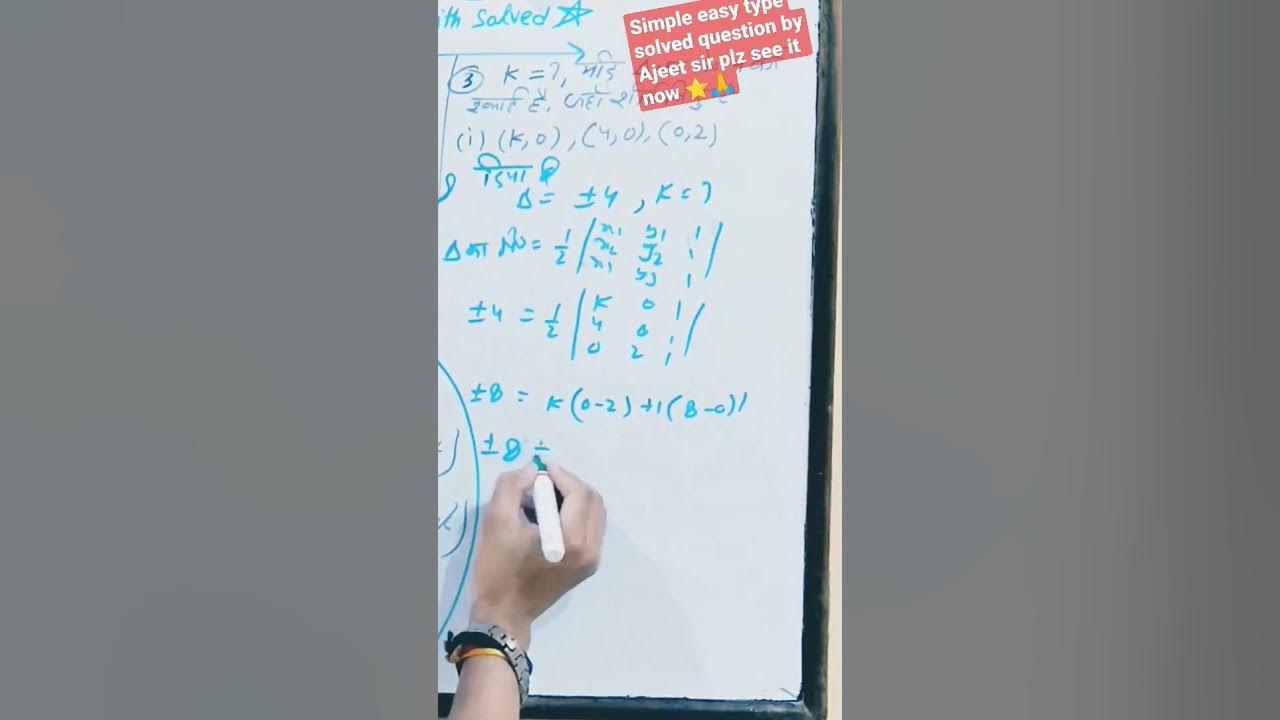 ith Solved ☆
Simple easy type
solved question by
Ajeet sir plz see it
now ⭐🙏
③ K = ?, यदि
इकाई है, जहाँ
(i) (K,0), (4,0), (0,2)
दिया है
Δ = ±4, K = ?
Δ का क्षे० = 1/2 | x₁ y₁ 1
x₂ y₂ 1
x₃ y₃ 1 |
±4 = 1/2 | K 0 1
4 0 1
0 2 1 |
±8 = K(0-2)+1(8-0)
±8 =